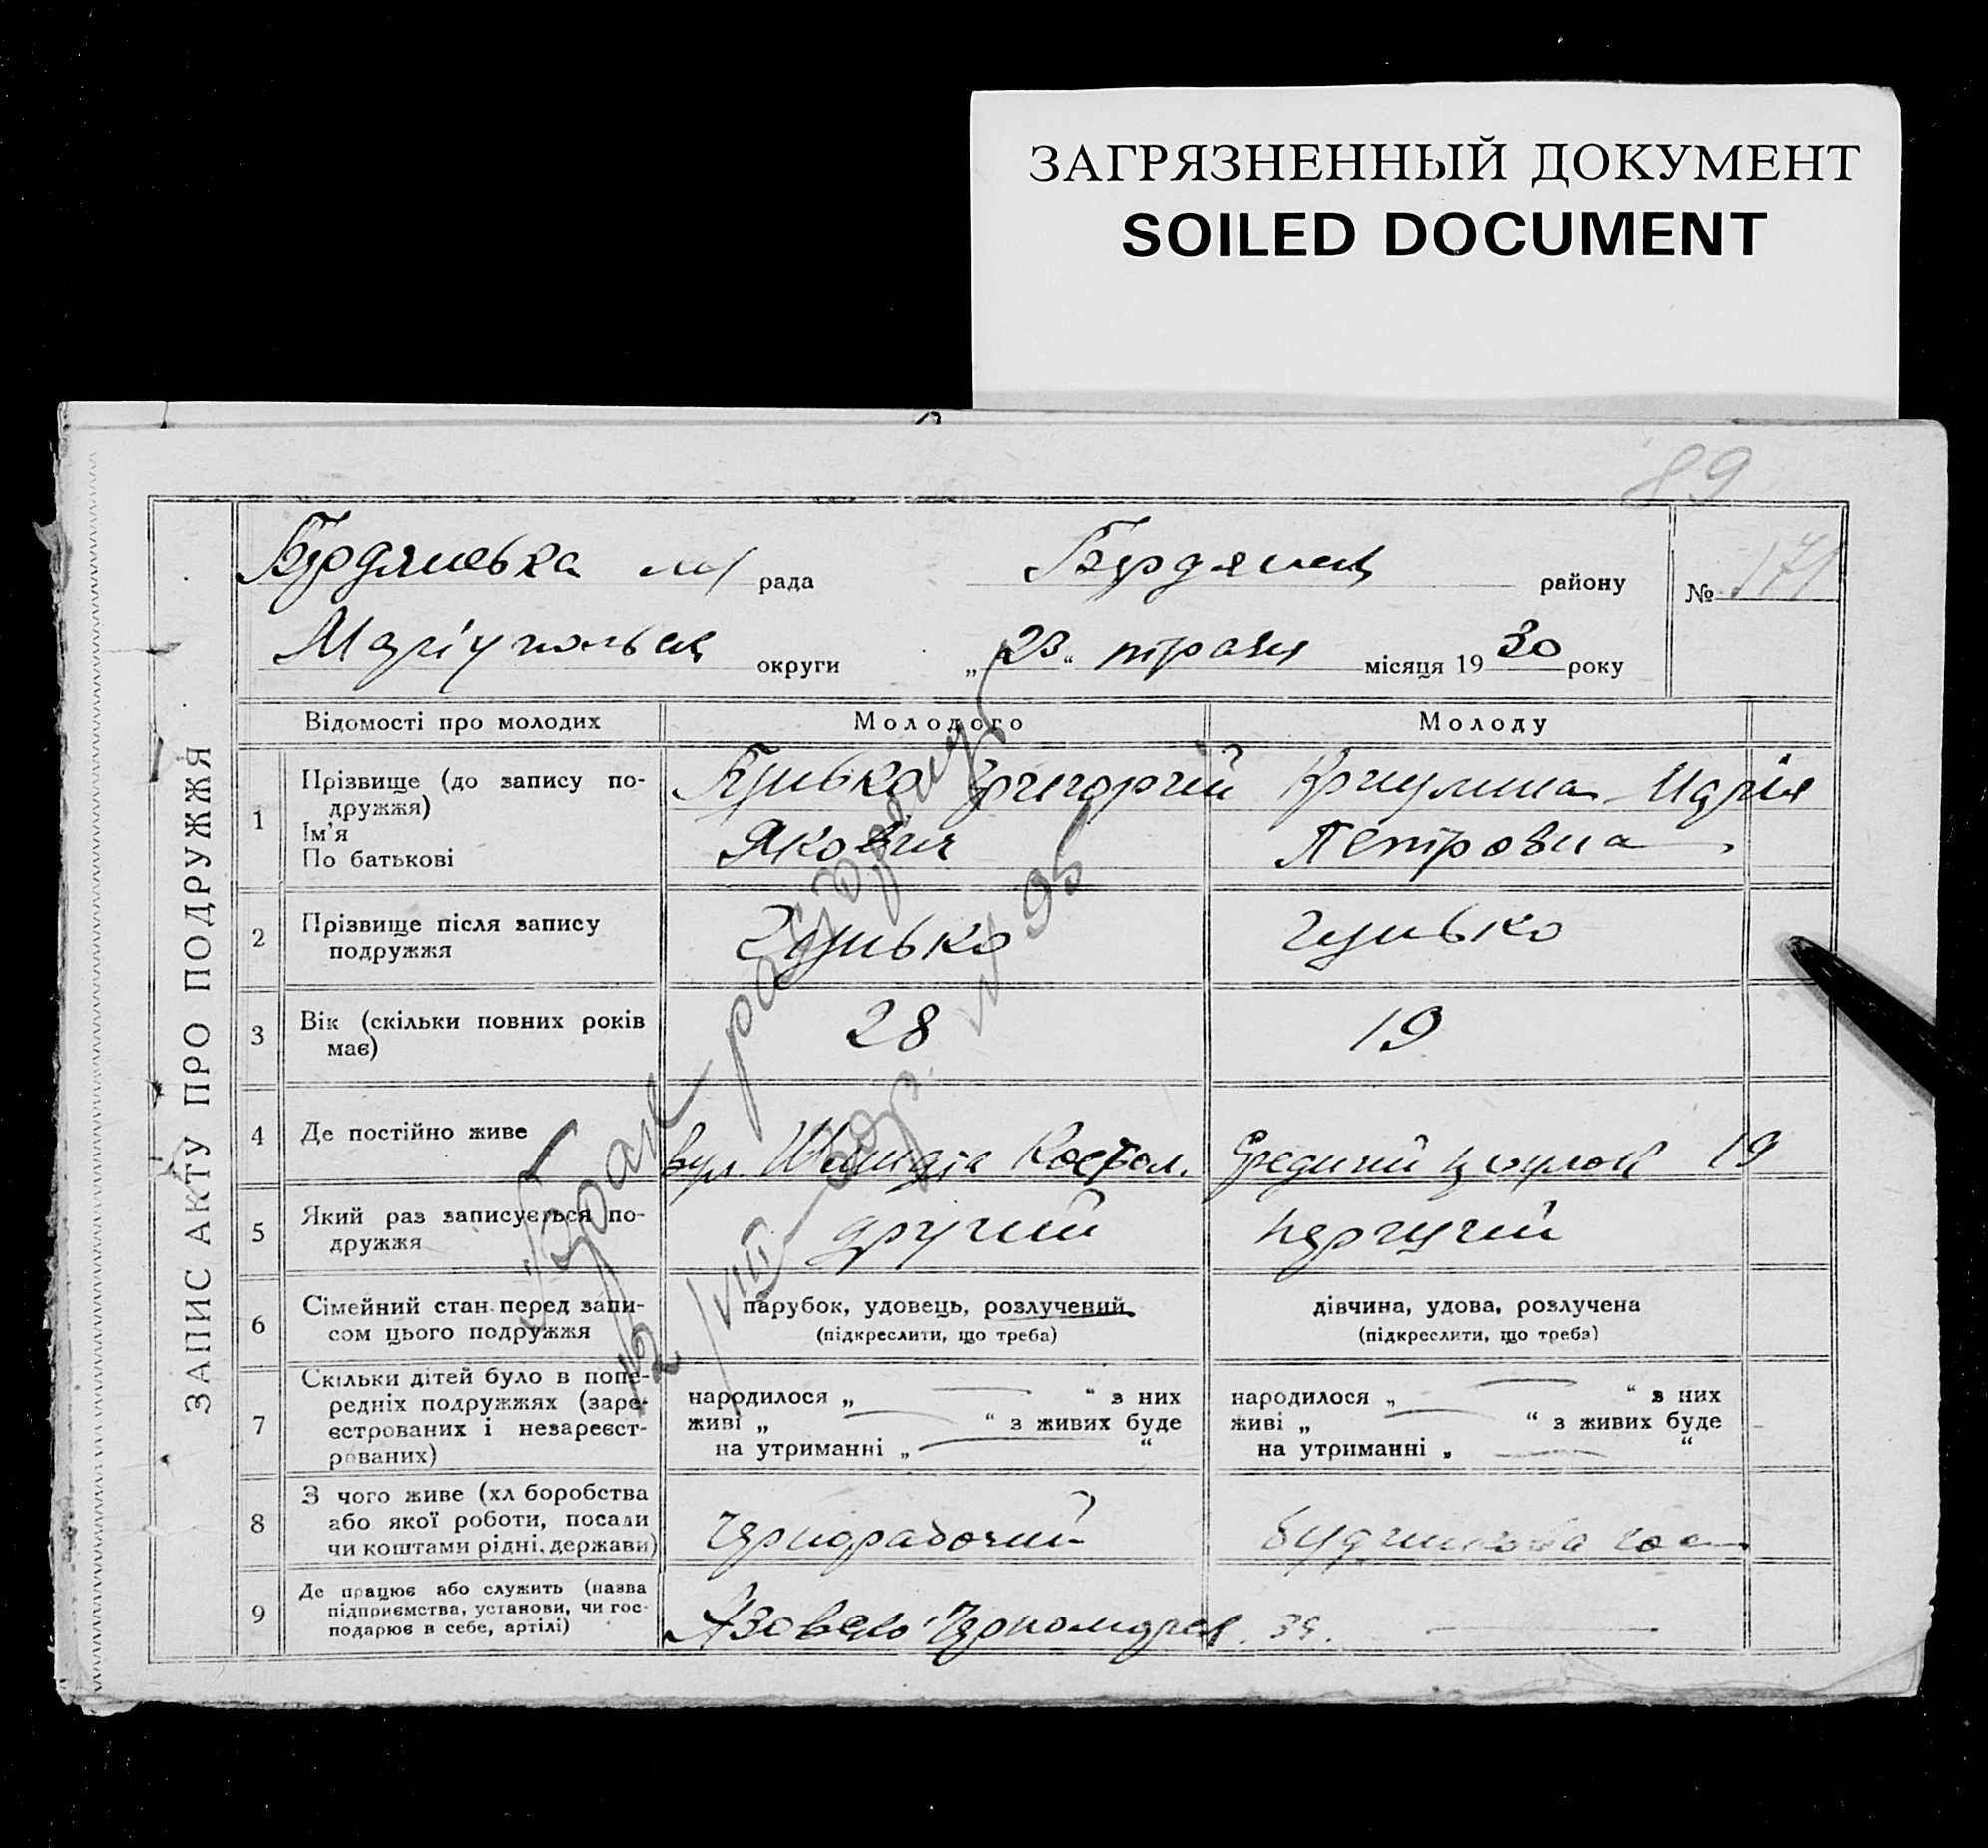 ЗАГРЯЗНЕННЫЙ ДОКУМЕНТ
SOILED DOCUMENT
89
ЗАПИС АКТУ ПРО ПОДРУЖЖЯ
рада
району
№ 171
округи „23“ травня місяця 1930 року
Відомості про молодих
Молодого
Молоду
1
Прізвище (до запису по-
дружжя)
Ім'я
По батькові
Григорій
Якович
Марія
Петровна
2
Прізвище після запису
подружжя
Гунько
Гунько
3
Вік (скільки повних років
має)
28
19
4
Де постійно живе
вул. Шмидта
19
5
Який раз записується по-
дружжя
другий
первичний
6
Сімейний стан перед запи-
сом цього подружжя
парубок, удовець, розлучений
(підкреслити, що треба)
дівчина, удова, розлучена
(підкреслити, що треба)
7
Скільки дітей було в попе-
редніх подружжях (заре-
єстрованих і незареєст-
рованих)
народилося „ “ з них
живі „ “ з живих буде
на утриманні „ “
народилося „ “ з них
живі „ “ з живих буде
на утриманні „ “
8
З чого живе (хл боробства
або якої роботи, посади
чи коштами рідні, держави)
Чернорабочий
9
Де працює або служить (назва
підприємства, установи, чи гос-
подарює в себе, артілі)
Брак